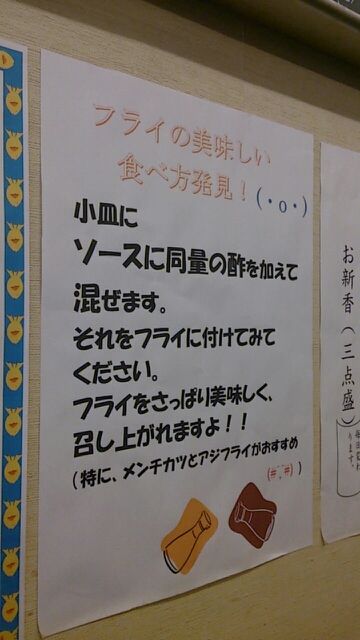 フライの美味しい
食べ方発見！(・o・)
小皿に
ソースに同量の酢を加えて
混ぜます。
それをフライに付けてみて
ください。
フライをさっぱり美味しく、
召し上がれますよ！！
(特に、メンチカツとアジフライがおすすめ
お新香(三点盛)